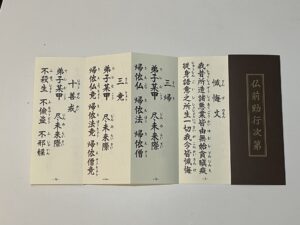 仏前勤行次第
懺悔文
我昔所造諸悪業皆由無始貪瞋癡
従身語意之所生一切我今皆懺悔
三帰
弟子某甲 尽未来際
帰依仏 帰依法 帰依僧
三竟
弟子某甲 尽未来際
帰依仏竟 帰依法竟 帰依僧竟
十善戒
弟子某甲 尽未来際
不殺生 不偸盗 不邪婬